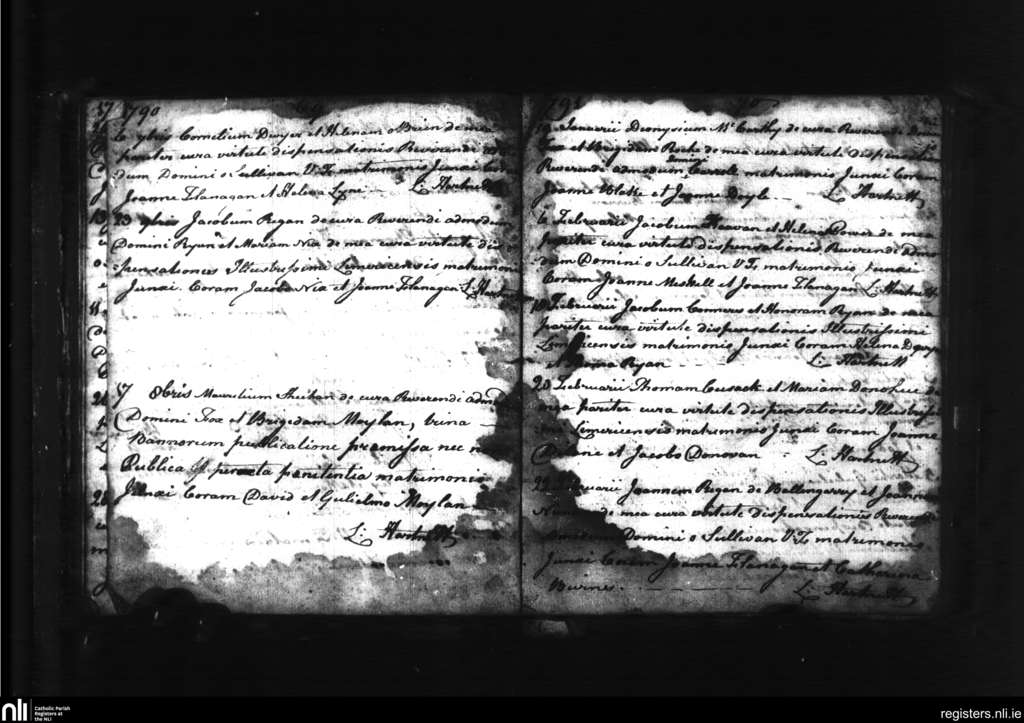 1790
6 9bris Cornelium Dwyer et Helenam o Brien de mea
pariter cura virtute dispensationis Reverendi
dum Domini o Sullivan V:G: matrimonio Junxi Coram
Joanne Flanagan et Helena Lyne L: Hartnett
23 9bris Jacobum Regan de cura Reverendi admodum
Domini Ryan et Mariam Nix de mea cura virtute dis
pensationis Illustrissimi Limericensis matrimonio
Junxi Coram Jacobo Nix et Joanne Flanagan L: Hartnett
7 8bris Mauritium Sheehan de cura Reverendi admodum
Domini Fox et Brigedam Moylan, trina
Bannorum publicatione premissa nec non
Publica peracta penitentia matrimonio
Junxi Coram David et Gulielmo Moylan
L: Hartnett
1791
Januarii Dionysium Mc Carthy de cura Reverendi Domini
Fox et Brigidam Roche de mea cura virtute dispensationis
Reverendi admodum Domini matrimonio Junxi Coram
Joanne Blake et Joanne Doyle L: Hartnett
6 Februarii Jacobum et Helenam Power de mea
pariter cura virtute dispensationis Reverendi admo
dum Domini o Sullivan V:G: matrimonio Junxi
Coram Joanne Meskell et Joanne Flanagan L: Hartnett
Februarii Jacobum Conners et Honoram Ryan de mea
pariter cura virtute dispensationis Illustrissimi
Limericensis matrimonio Junxi Coram Helena Dwyer
et Ryan L: Hartnett
20 Februarii Thomam Cusack et Mariam Donohue de
mea pariter cura virtute dispensationis Illustrissi
mi Limericensis matrimonio Junxi Coram Joanne
et Jacobo Donovan L: Hartnett
Februarii Joannem Regan de Ballingarry et Joannam
de mea cura virtute Dispensationis Reverendi
admodum Domini o Sullivan V:G: matrimonio
Junxi Coram Joanne Flanagan et Catharina
Burnes. L: Hartnett
nli Catholic Parish
Registers at
the NLI
registers.nli.ie